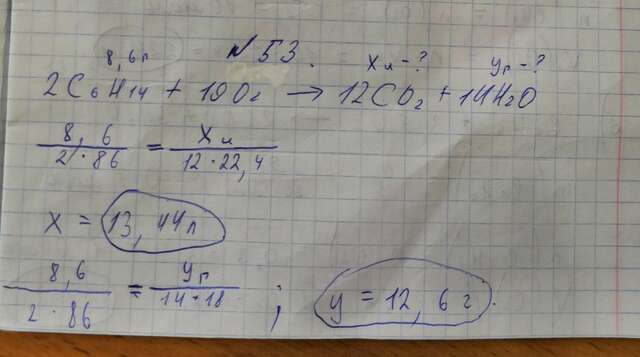 N 53.
8,6г Xл-? Yг-?
2C6H14 + 19O2 → 12CO2 + 14H2O
8,6 / 2·86 = Xл / 12·22,4
X = 13,44л
8,6 / 2·86 = Yг / 14·18 ; y = 12,6г.